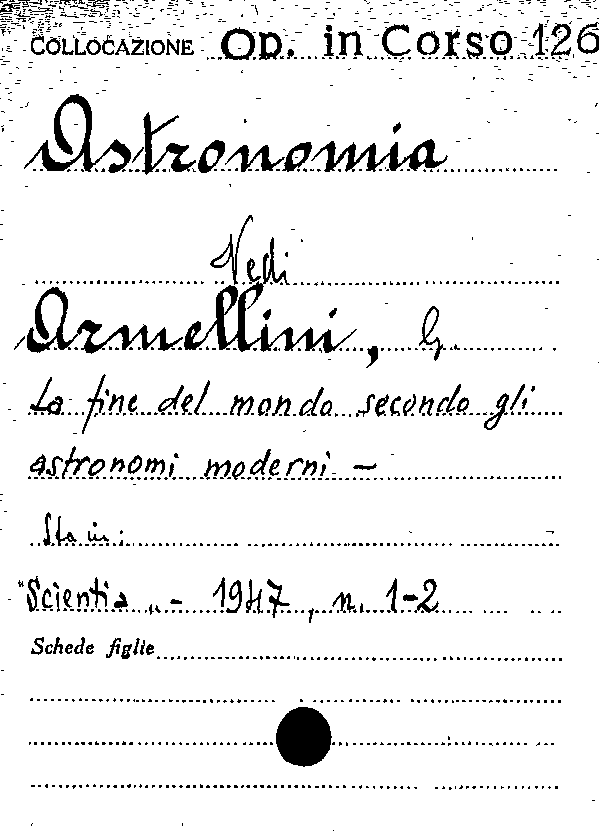 COLLOCAZIONE Op. in Corso 126
Astronomia
Vedi
Armellini, G.
La fine del mondo secondo gli
astronomi moderni —
Sta in:
"Scientia„ - 1947, n. 1-2
Schede figlie